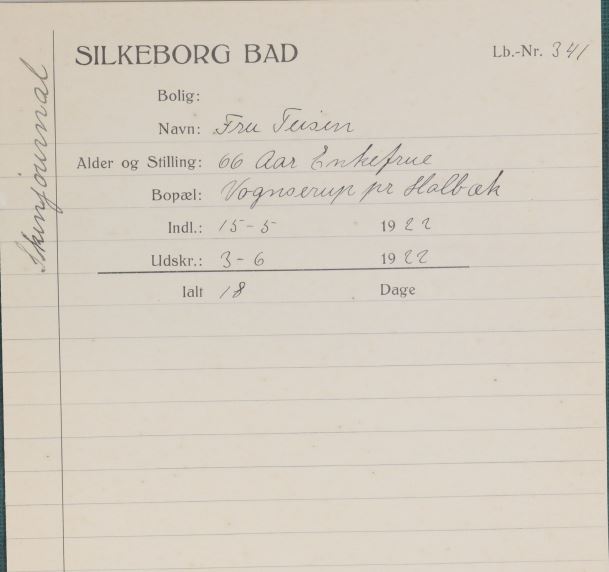 SILKEBORG BAD
Lb.-Nr. 341
Bolig:
Navn: Fru Teisen
Alder og Stilling: 66 Aar Enkefrue
Bopæl: Vognserup pr Holbæk
Indl.: 15-5 1922
Udskr.: 3-6 1922
Ialt 18 Dage